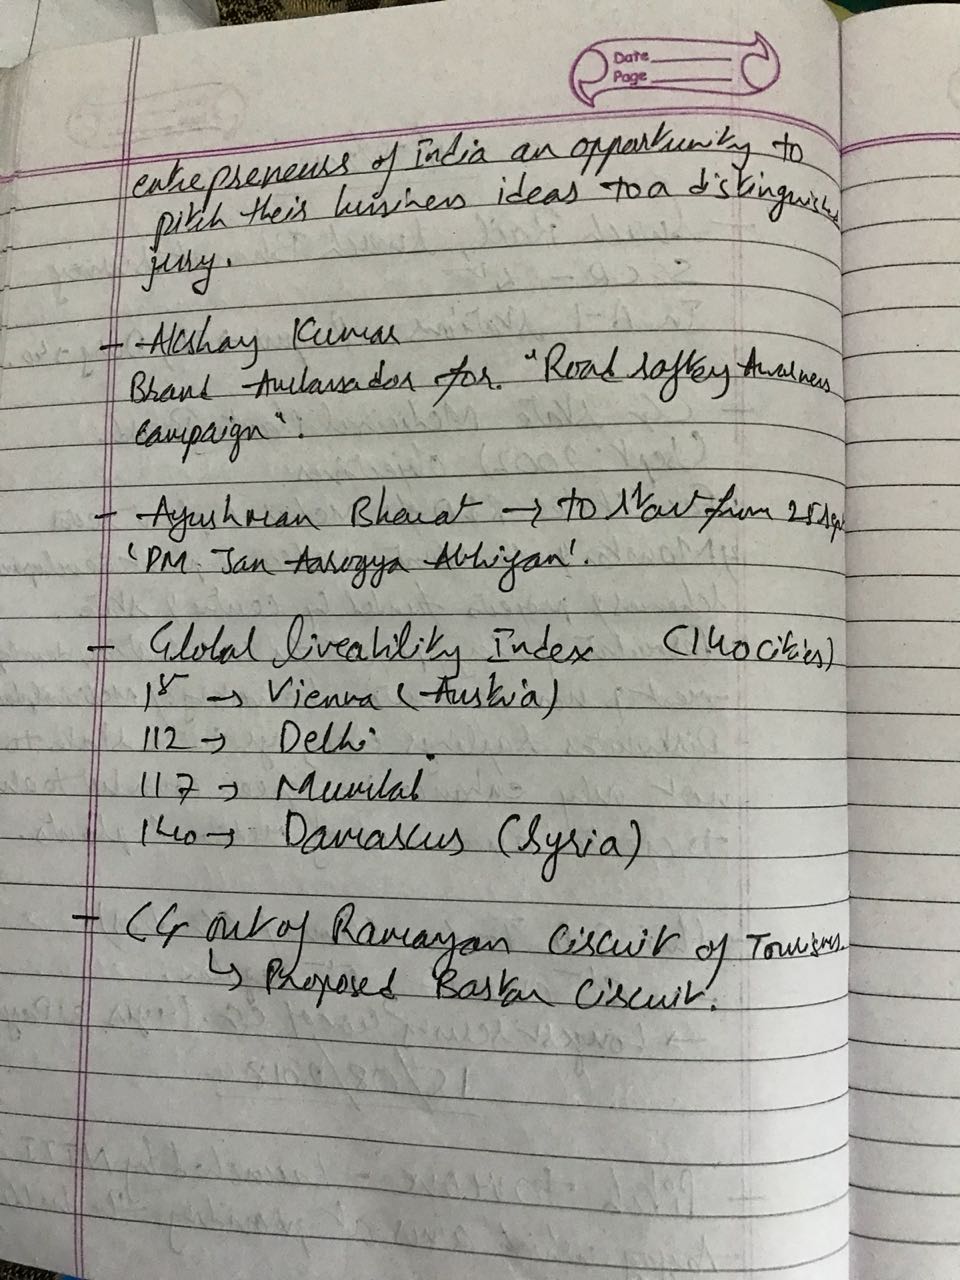 Date
Page
entrepreneurs of India an opportunity to
pitch their business ideas to a distinguished
jury.
- Akshay Kumar
Brand Ambassador for "Road safety Awarness
campaign".
- Ayushman Bharat → to start from 25 Sept
'PM. Jan Aarogya Abhiyan'.
- Global liveability Index (140 cities)
1st → Vienna (Austria)
112 → Delhi
117 → Mumbai
140 → Damascus (Syria)
- CG out of Ramayan Circuit of Tourism.
↳ Proposed Bastar Circuit.